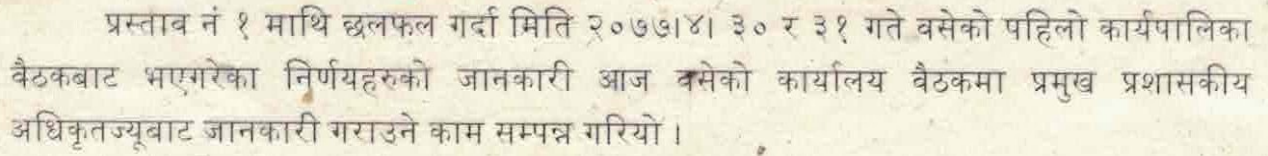 प्रस्ताव नं १ माथि छलफल गर्दा मिति २०७७।४। ३० र ३१ गते वसेको पहिलो कार्यपालिका
वैठकबाट भाएगरेका निर्णयहरुको जानकारी आज वसेको कार्यालय वैठकमा प्रमुख प्रशासकीय
अधिकृतज्यूबाट जानकारी गराउने काम सम्पन्न गरियो ।